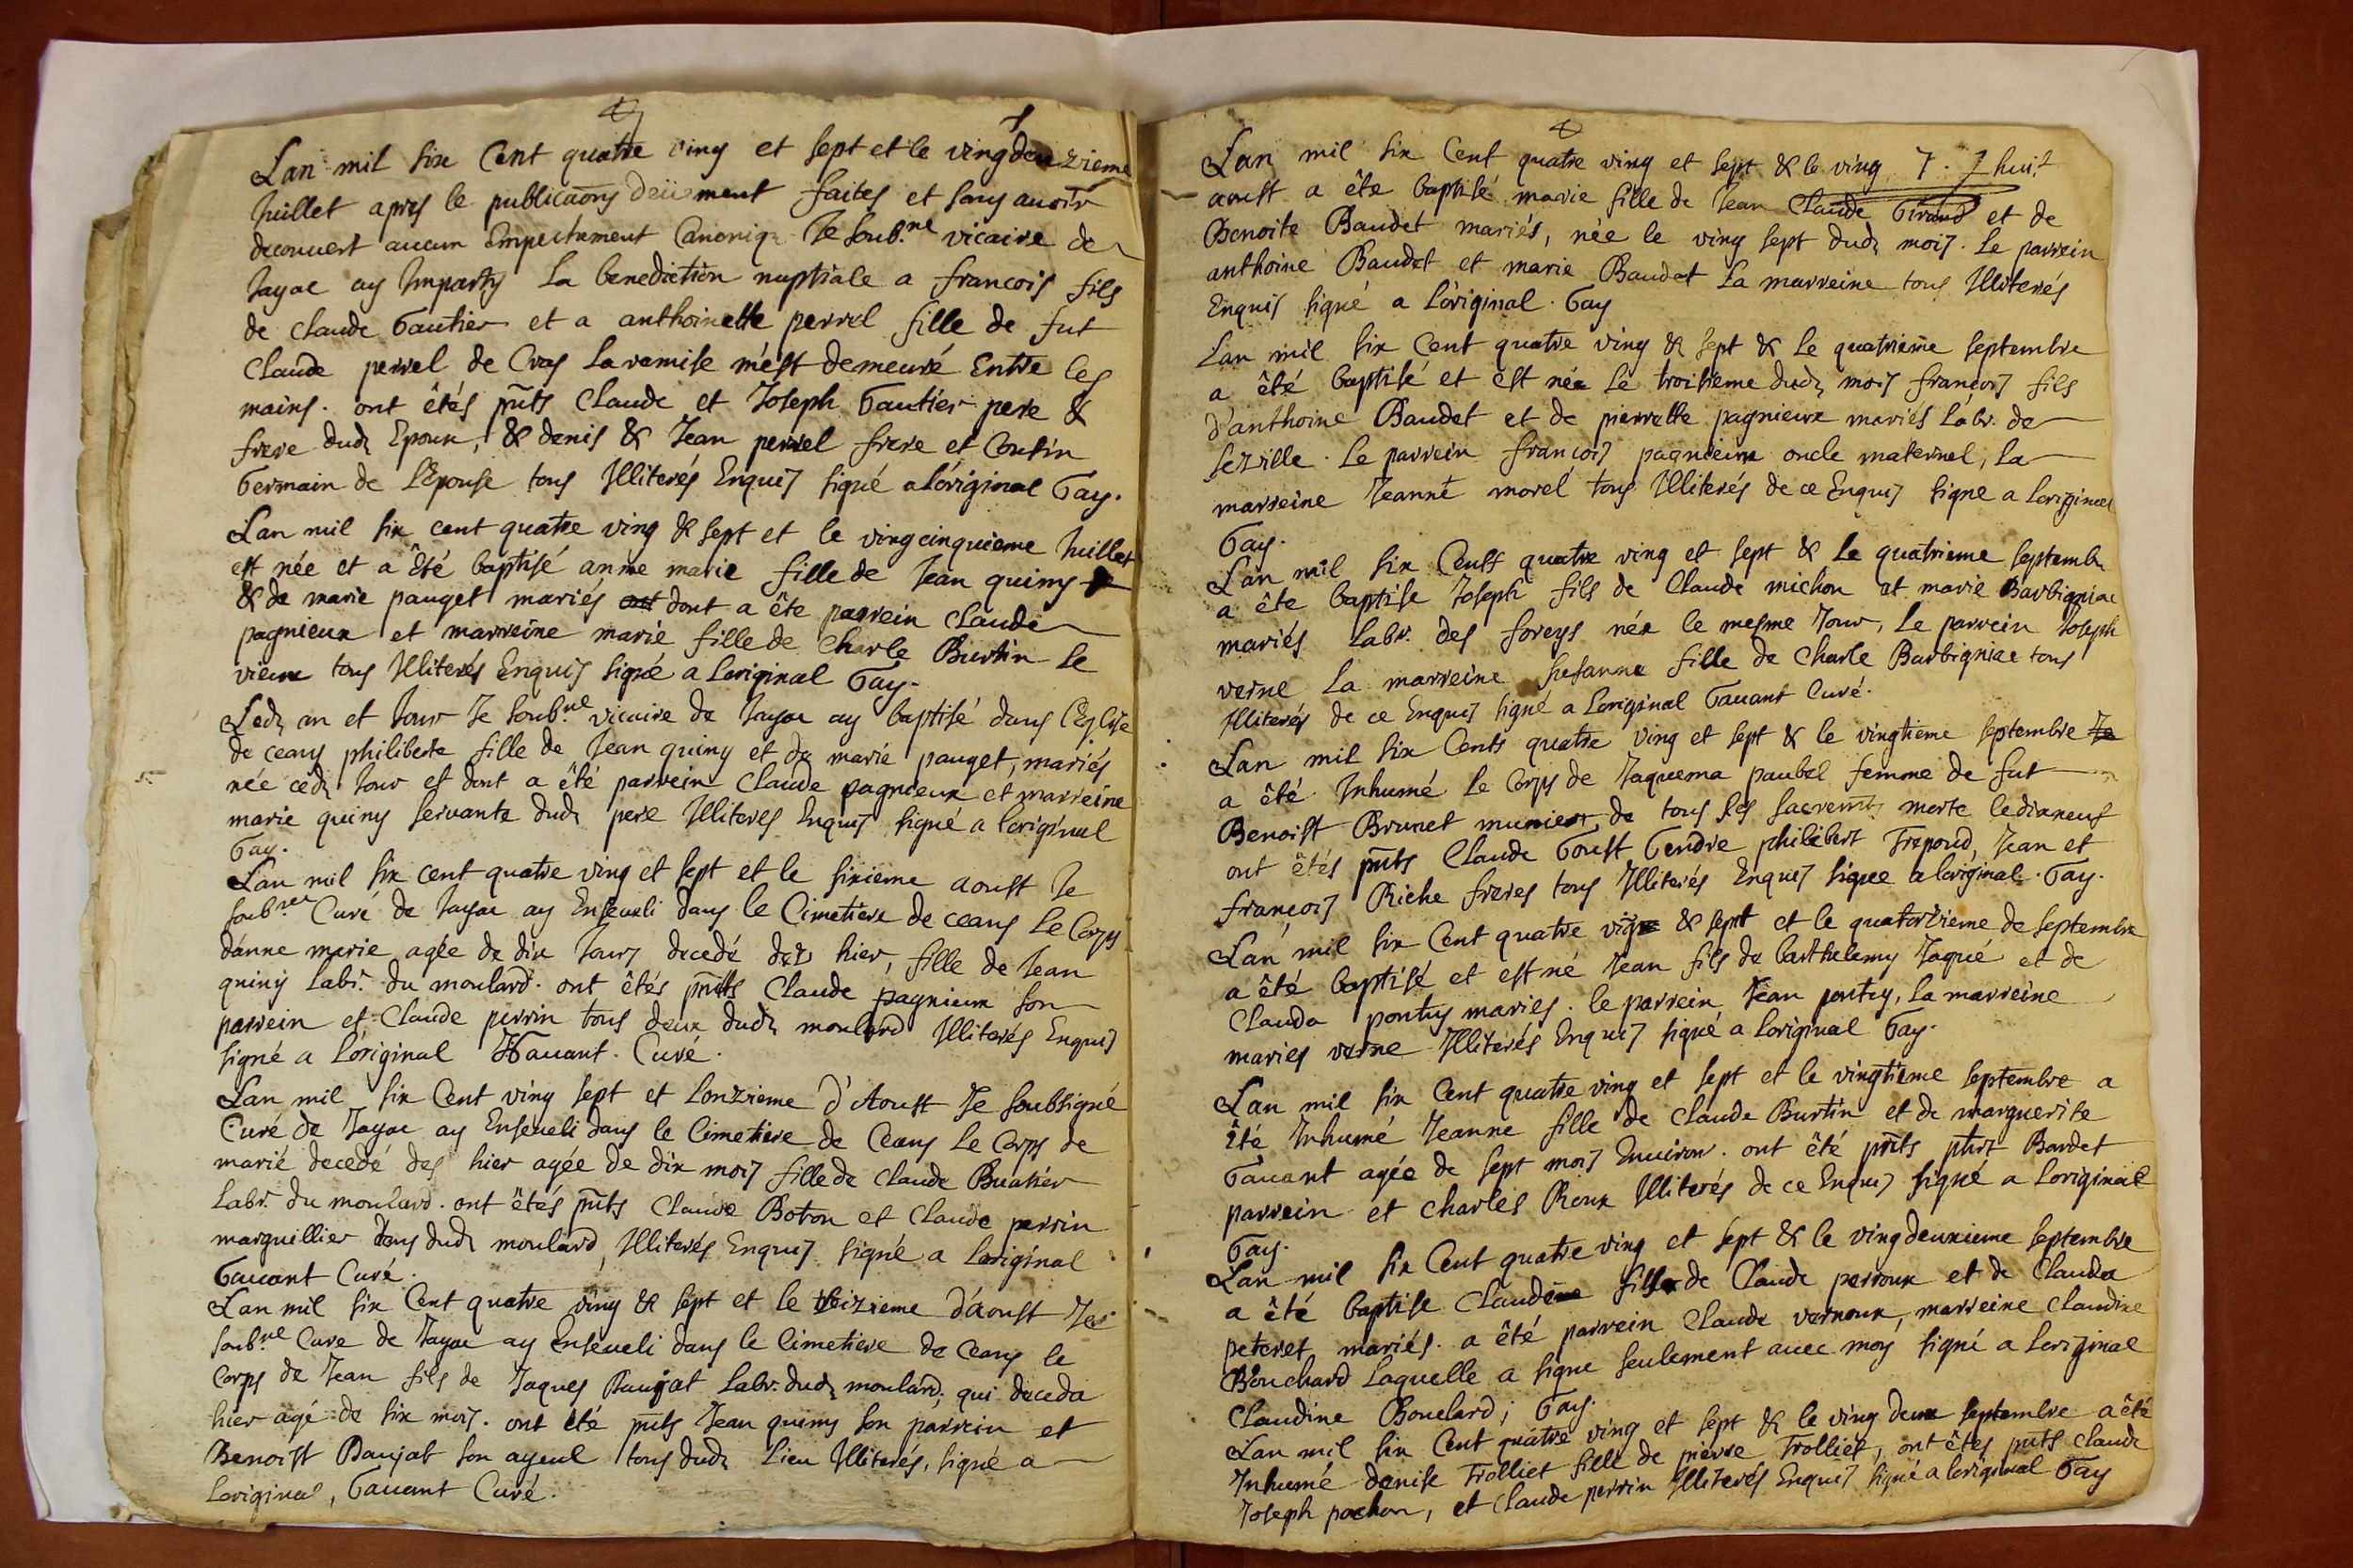 Lan mil six Cent quatre ving et sept et le ving deuzieme
Juillet apres le publicaōns deüement faites et sans auoir
decouuert aucun Empechement Canoniq Je soub.né vicaire de
Jayac ay Imparty La benediction nuptiale a francois fils
de claude Gautier et a anthoinette perrel fille de fut
Claude perrel de Cras La remise m'est demeuré Entre les
mains. ont êtés pñts Claude et Joseph Gautier pere &
frere dud. Epoux, & denis & Jean perrel frere et Coutin
Germain de L'Epouse tous Illiterés Enquis signé a l'original Gay.
Lan mil six cent quatre ving & sept et le vingcinquieme Juillet
est née et a êté baptisé anne marie fille de Jean quiny
& de marie pauget mariés dont a ête parrein Claude
pagnieux et marreine marie fille de Charle Burtin le
vieux tous Illiterés Enquis signé a Loriginal Gay.
Led. an et Jour Je soub.né vicaire de Jayac ay baptisé dans l'Eglise
de ceans philiberte fille de Jean quiny et de marie pauget, mariés
née ced. Jour et dont a êté parrein Claude pagnieux et marreine
marie quiny seruante dud. pere Illiteres Enquis signé a loriginal
Gay.
Lan mil six cent quatre ving et sept et le sixieme aoust Je
soub.né Curé de Jayac ay Enseueli dans le Cimetiere de ceans Le Corps
d'anne marie agée de dix Jours decedé des hier, fille de Jean
quiny Labr. du moulard. ont êtés pñts Claude pagnieux son
parrein et Claude perrin tous deux dud. moulard Illiterés Enquis
signé a l'original Gauant. Curé.
Lan mil six Cent ving sept et Lonzieme d'Aoust Je soubsigné
Curé de Jayac ay Enseueli dans le Cimetiere de Ceans Le Corps de
marie decedé des hier agée de dix mois fille de Claude Buatier
Labr. du moulard. ont êtés pñts Claude Boton et Claude perrin
marguillier tous dud. moulard, Illiterés Enquis signé a Loriginal
Gauant Curé.
Lan mil six Cent quatre ving & sept et le treizieme d'aoust Je
soub.né Curé de Jayac ay Enseueli dans le Cimetiere de Ceans le
Corps de Jean fils de Jaques Baujat Labr. dud. moulard; qui deceda
hier agé de six mois. ont êté pñts Jean quiny son parrein et
Benoist Baujat son ayeul tous dud. Lieu Illiterés, signé a
Loriginal, Gauant Curé.
Lan mil six Cent quatre ving et sept & le ving 7. huit
aoust a êté baptisé marie fille de Jean Claude Giraud et de
Benoite Baudet mariés, née le ving sept dud. mois. Le parrein
anthoine Baudet et marie Baudet La marreine tous Illiterés
Enquis signé a L'original. Gay
Lan mil six Cent quatre ving & sept & Le quatrieme septembre
a êté baptisé et est née Le troisieme dud. mois françois fils
d'anthoine Baudet et de pierrette pagnieux mariés Labr. de
sezille. Le parrein françois pagnieux oncle maternel, La
marreine Jeanne morel tous Illiterés de ce Enquis signé a Loriginal
Gay.
Lan mil six Cents quatre ving et sept & Le quatrieme septemb.
a ête baptisé Joseph fils de Claude michon et marie Barbigniac
mariés Labr. des foreys née le mesme Jour, Le parrein Joseph
verne La marreine susanne fille de Charle Barbigniac tous
Illiterés de ce Enquis signé a Loriginal Gauant Curé.
Lan mil six Cents quatre ving et sept & le vingtieme septembre
a êté Inhumé Le Corps de Jaquema paubel femme de fut
Benoist Brunet munie de tous les sacremts morte le dixneuf
ont êtés pñts Claude Goust Gendre philibert Frepond, Jean et
françois Riche freres tous Illiterés Enquis signé a l'original. Gay.
Lan mil six Cent quatre ving & sept et le quatorzieme de septembre
a êté baptisé et est né Jean fils de barthelemy Jaqué et de
Clauda pontuy maries. le parrein Jean pontuy, la marreine
maries verne Illiterés Enquis signé a Loriginal Gay.
Lan mil six Cent quatre ving et sept et le vingtieme septembre a
êté Inhumé Jeanne fille de Claude Burtin et de marguerite
Gauant agée de sept mois Enuiron. ont êté pñts phirt Bardet
parrein et charles Rioux Illiterés de ce Enquis signé a Loriginal
Gay.
Lan mil six Cent quatre ving et sept & le vingdeuxieme septembre
a êté baptise Claudine fille de Claude perroux et de Clauda
peteret mariés. a êté parrein Claude vernoux, marreine Claudine
Bouchard Laquelle a signe seulement auec moy signé a Loriginal
Claudine Bouclard; Gay.
Lan mil six Cent quatre ving et sept & le ving deux septembre a êté
Inhumé denise Trolliet fille de pierre Trolliet, ont êtes pñts Claude
Joseph pochon, et Claude perrin Illiterés Enquis signé a loriginal Gay